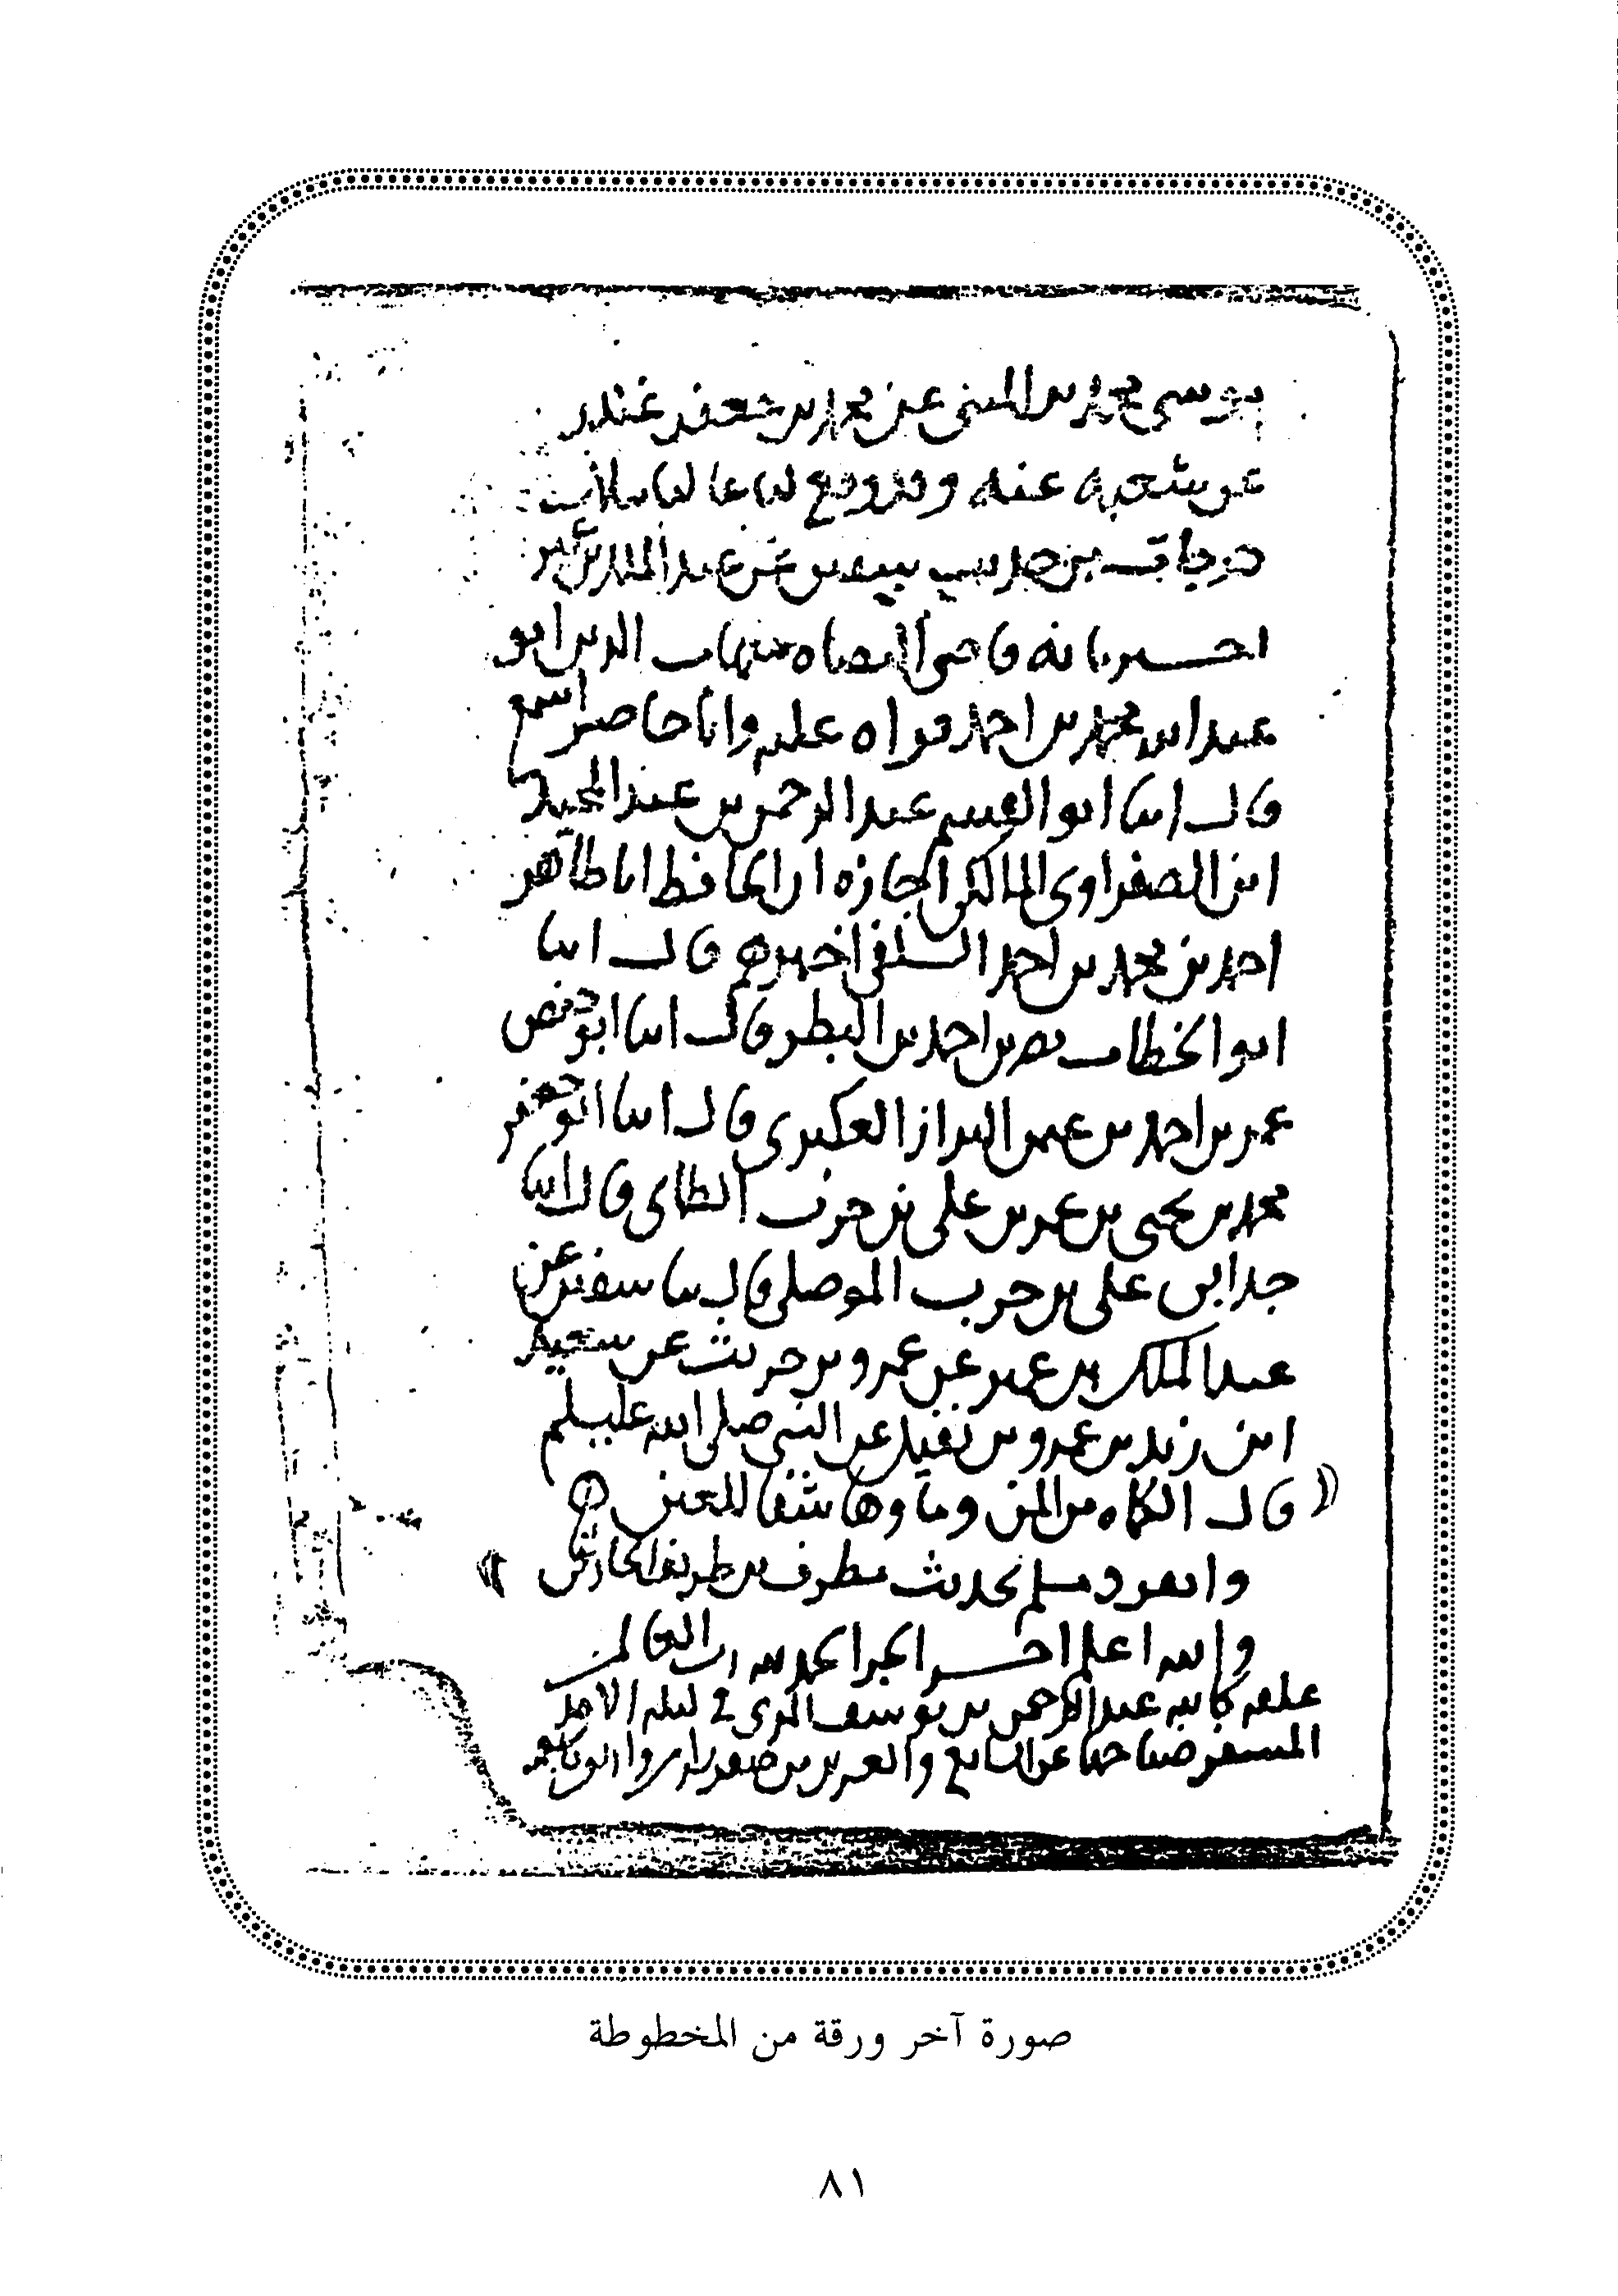 موسى محمد بن المثنى عن محمد بن جعفر غندر
عن شعبة عنه وقد وقع لنا عاليا بثلاث
درجات من حديث سفين عن عبد الملك بن عمير
اخبرنا به قاضي القضاه شهاب الدين ابو
عبد الله محمد بن احمد قراه عليه وانا حاضر اسمع
قال انبا ابو القسم عبد الرحمن بن عبد المجيد
ابن الصفراوي المالكي اجازه ان الحافظ ابا طاهر
احمد بن محمد بن احمد السلفي اخبرهم قال انبا
ابو الخطاب نصر بن احمد بن البطر قال انبا ابو حفص
عمر بن احمد بن عمر البزاز العكبري قال انبا ابو جعفر
محمد بن يحيى بن عمر بن علي بن حرب الطاي قال انبا
جد ابي علي بن حرب الموصلي قال ثنا سفين عن
عبد الملك بن عمير عن عمرو بن حريث عن سعيد
ابن زيد بن عمرو بن نفيل عن النبي صلى الله عليه وسلم
قال الكماه من المن وماوها شفا للعين
وانفرد مسلم بحديث مطرف بن طريف الحارثي
والله اعلم اخر الجزا الحمد لله رب العالمين
علقه كاتبه عبد الرحمن بن يوسف المزي في ليلة الاحد
المسفر صباحها عن السابع والعشرين من صفر
صورة آخر ورقة من المخطوطة
٨١